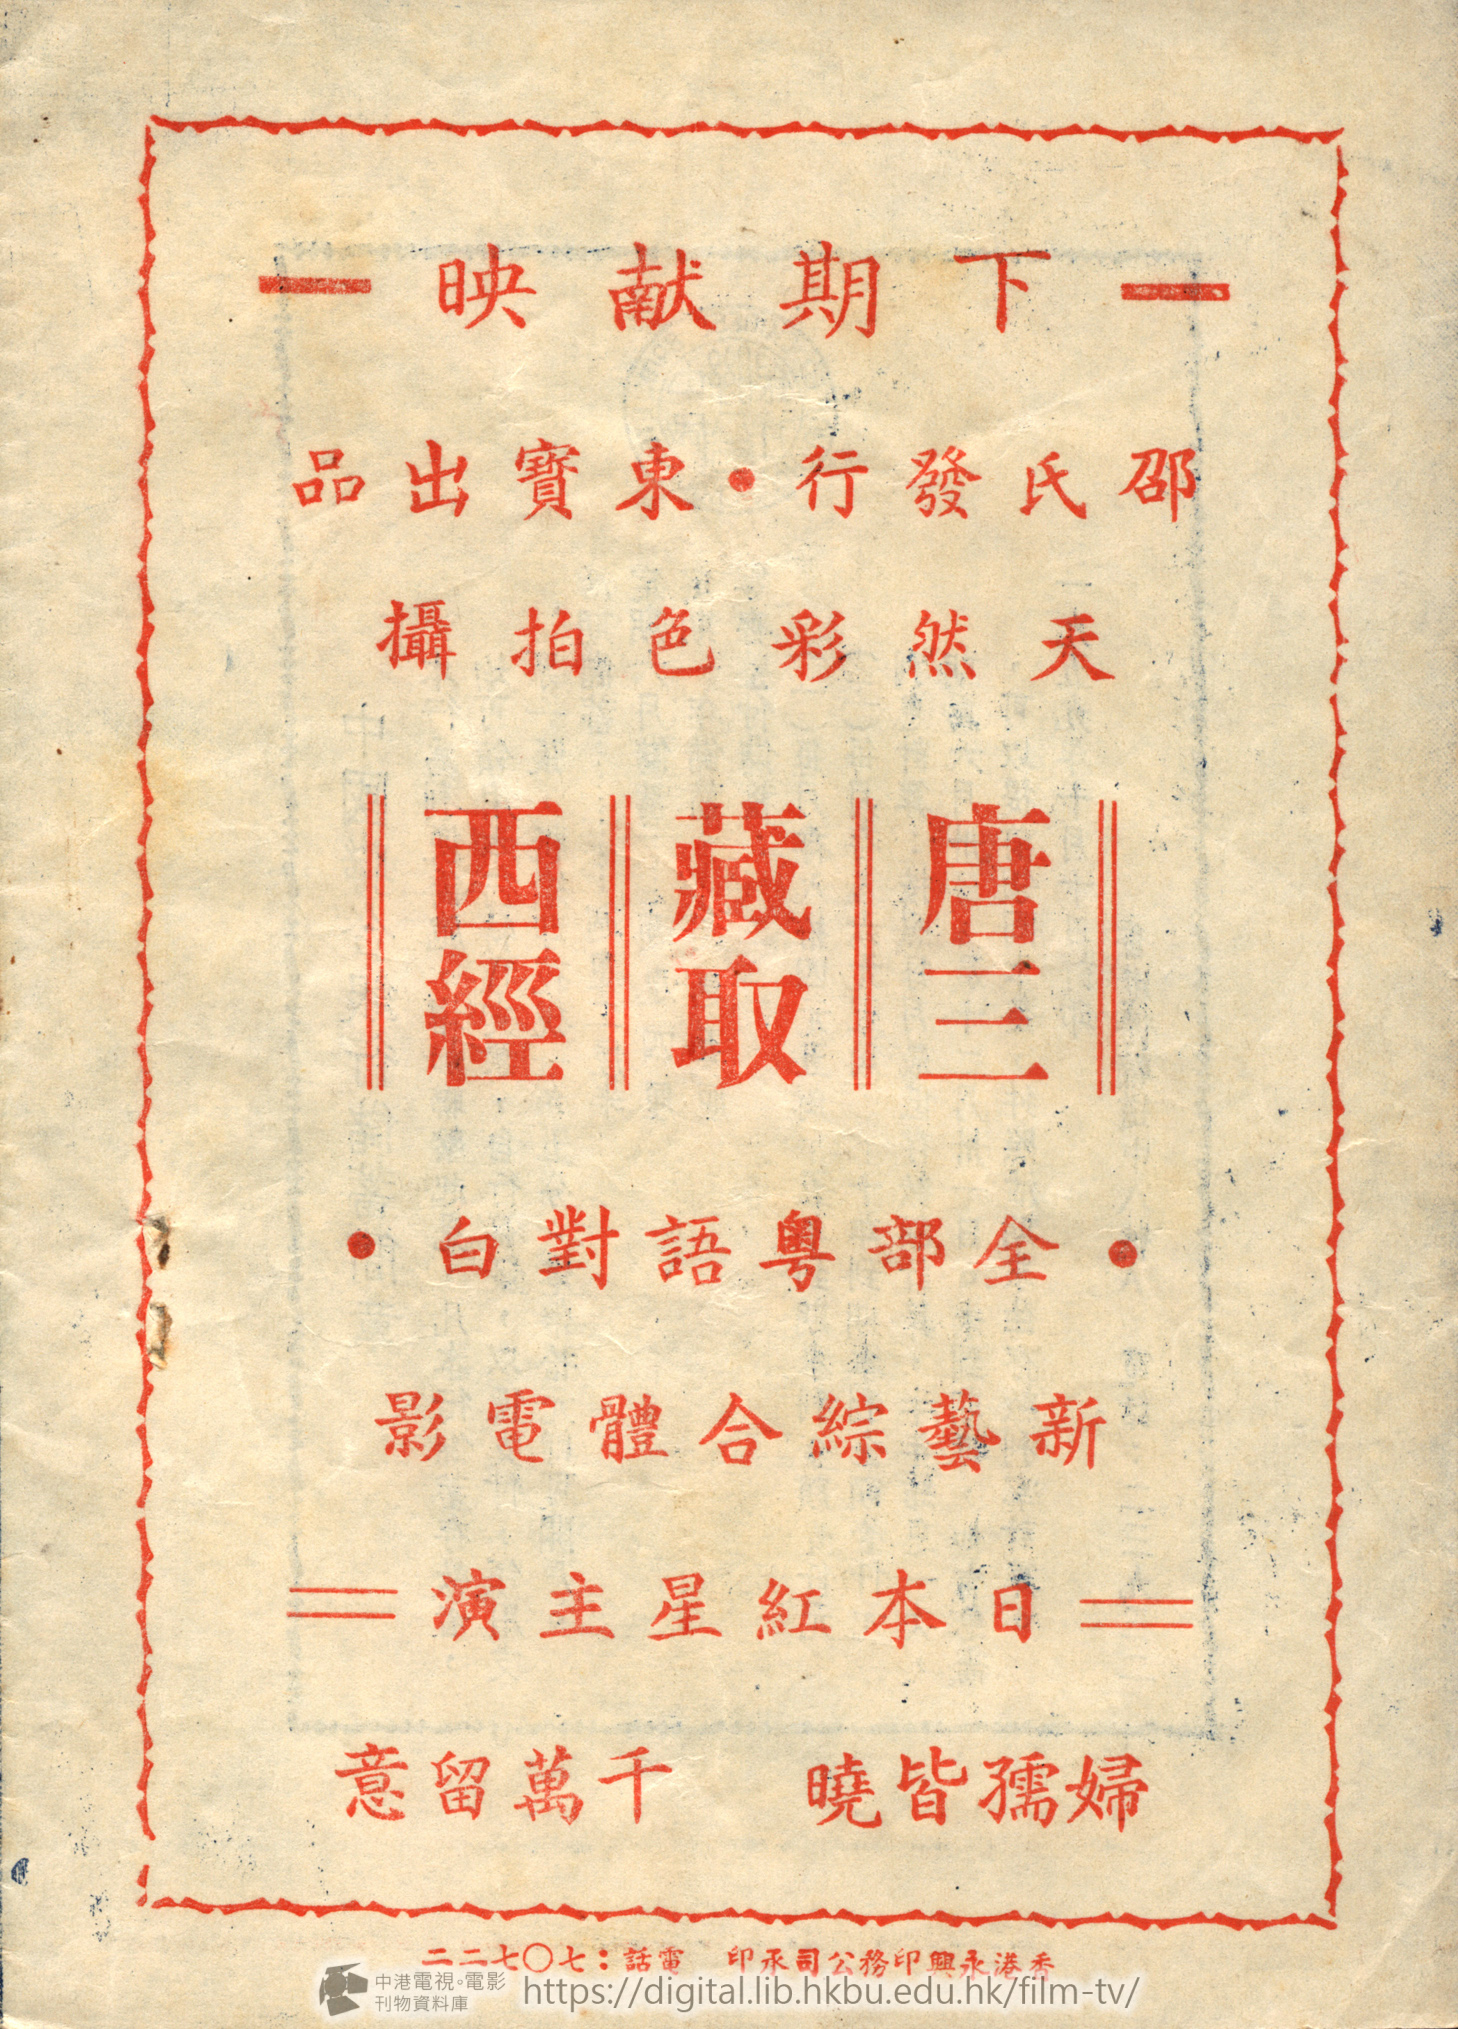 下期献映
邵氏發行•東寶出品
天然彩色拍攝
唐三藏取西經
•全部粵語對白•
新藝綜合體電影
日本紅星主演
婦孺皆曉 千萬留意
香港永興印務公司承印 電話：七〇七二二
中港電視。電影
刊物資料庫
https://digital.lib.hkbu.edu.hk/film-tv/